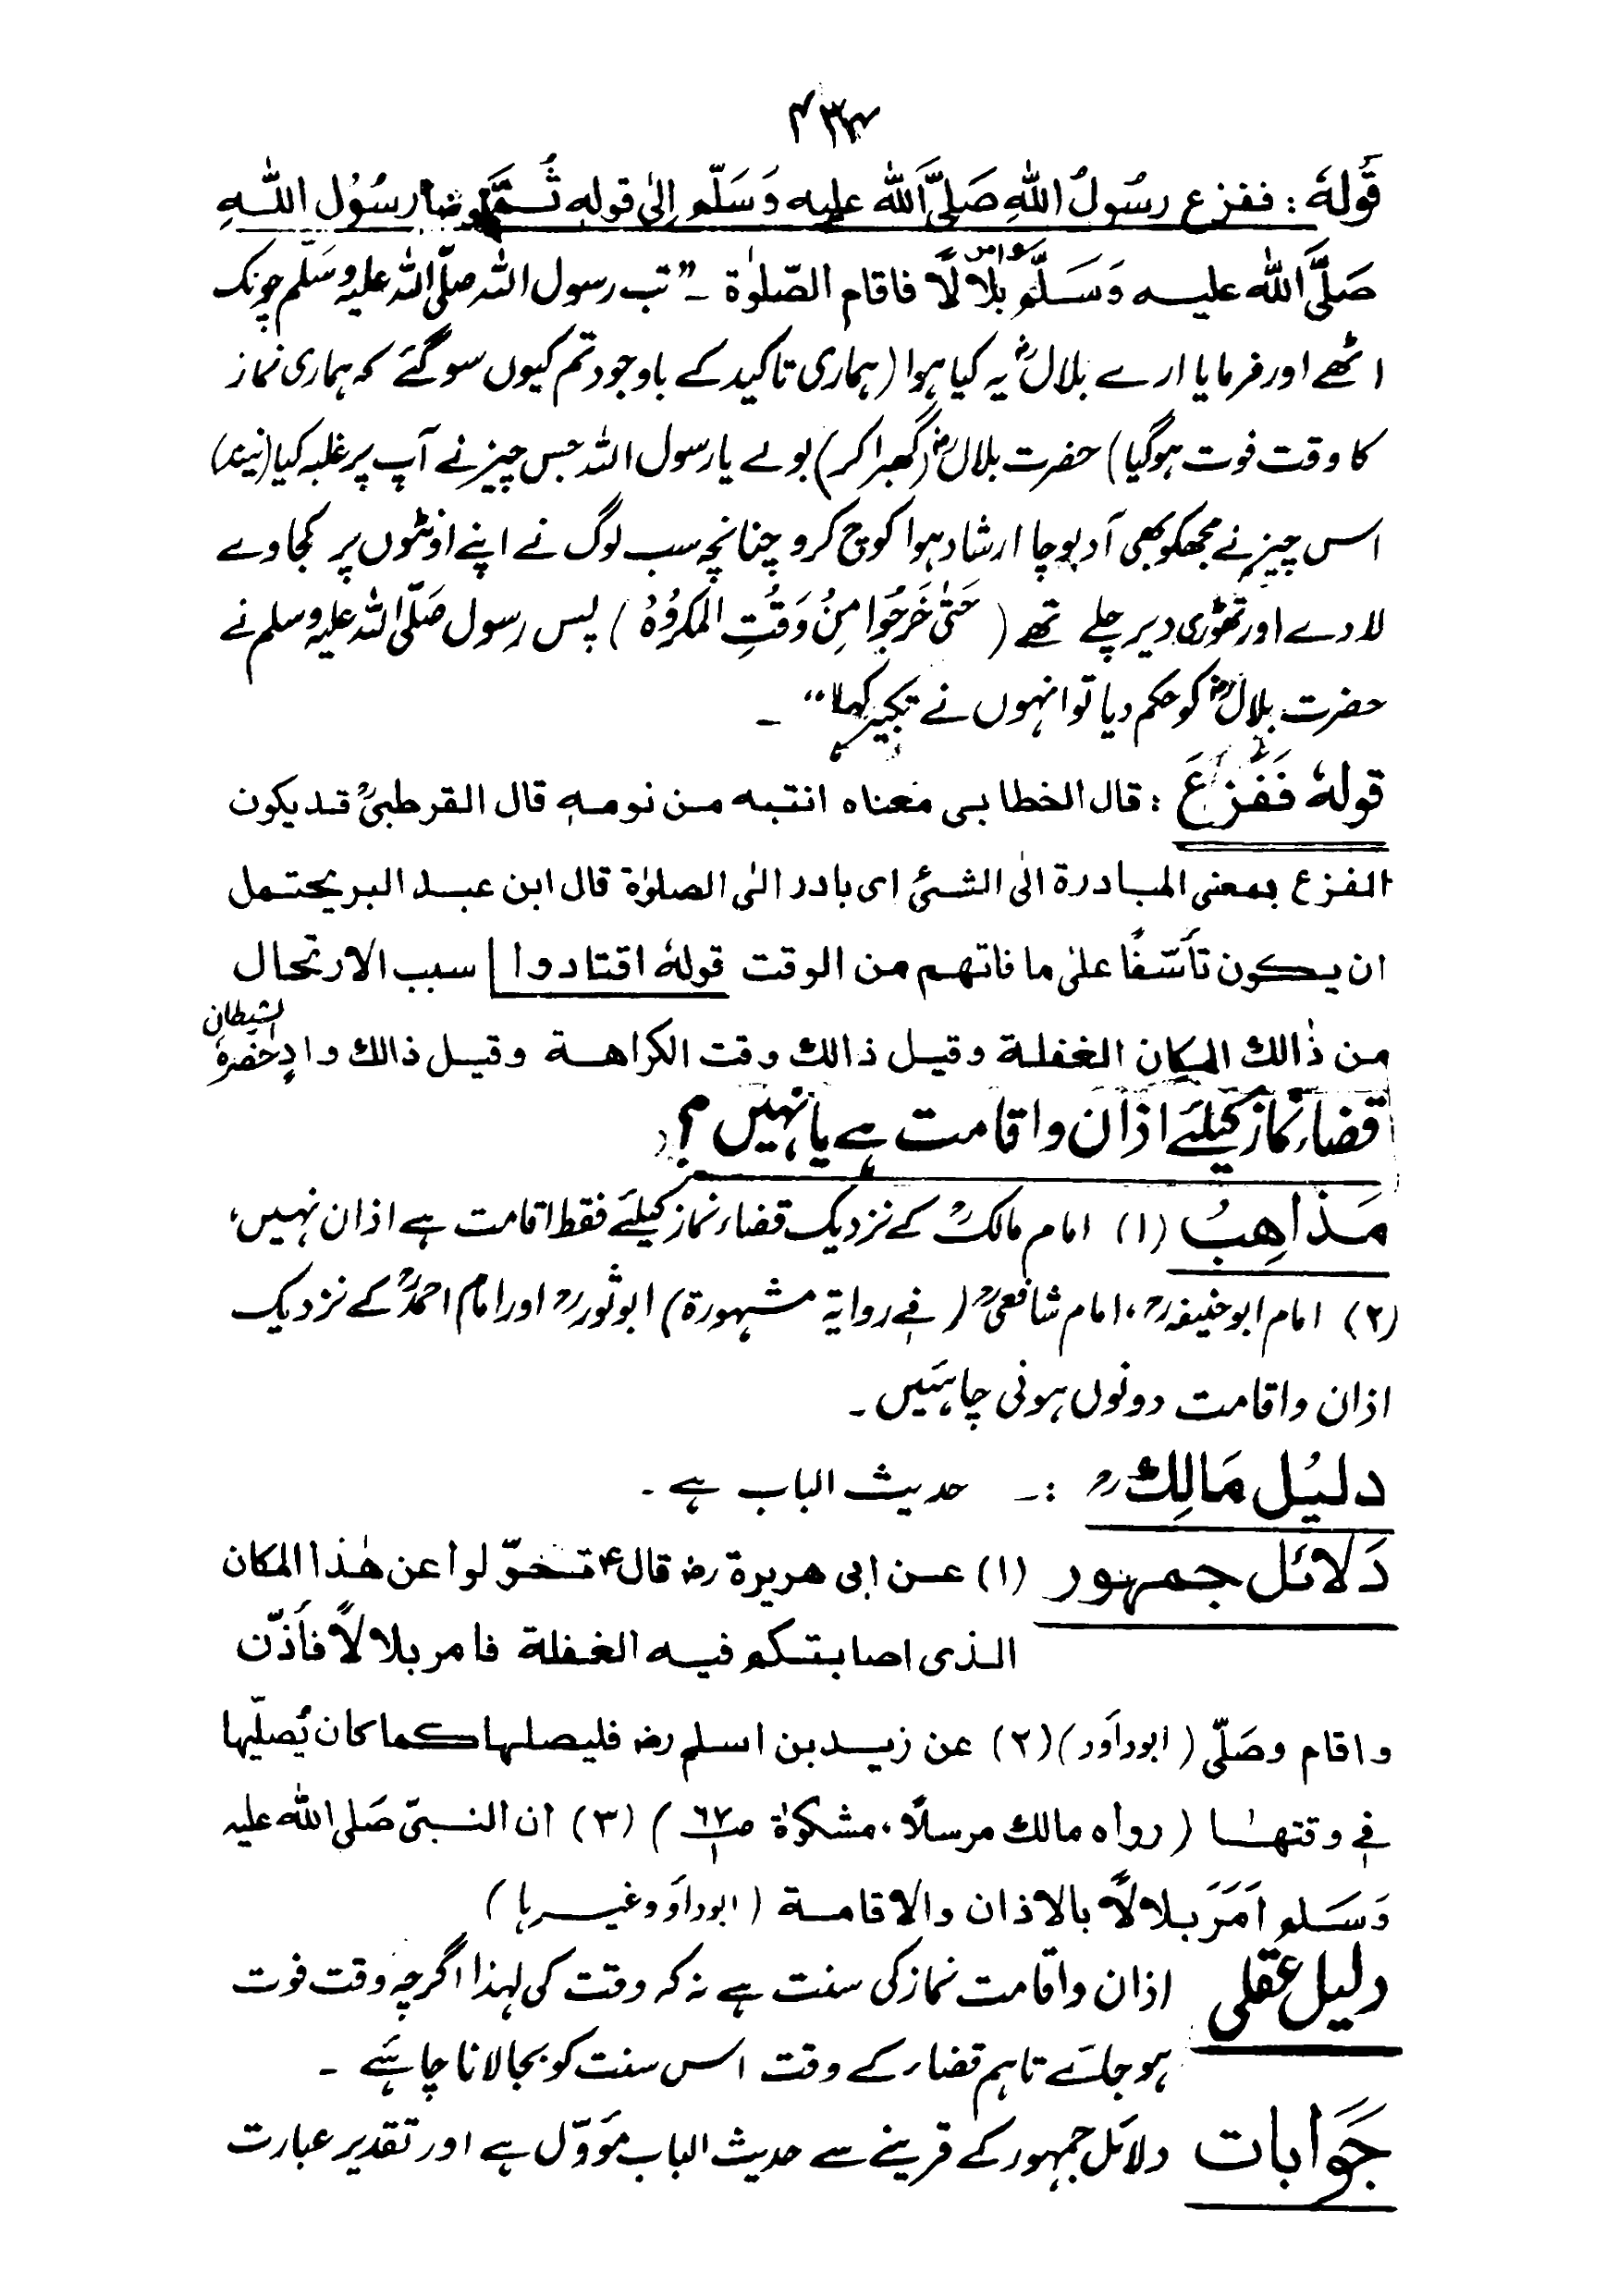 ۴۳۴
قولہٗ : ففزع رسُولُ اللّٰهِ صَلَّى اللّٰه عليه وَسَلّم اِلىٰ قوله ثُمَّ توضأ رسُوْل اللّٰهِ
صَلَّى اللّٰه عليه وَسَلَّم وامر بلالًا فاقام الصّلوٰة ۔ ” تب رسول اللہ صلّی اللہ علیہ وسَلّم چونک
اٹھے اور فرمایا ارے بلالؓ یہ کیا ہوا (ہماری تاکید کے باوجود تم کیوں سو گئے کہ ہماری نماز
کا وقت فوت ہوگیا) حضرت بلالؓ (گھبرا کر) بولے یا رسول اللہ جس چیز نے آپ پر غلبہ کیا (نیند)
اس چیز نے مجھکو بھی آدبوچا ارشاد ہوا کوچ کرو چنانچہ سب لوگ نے اپنے اونٹوں پر کجاوے
لادے اور تھوڑی دیر چلے تھے (حَتىٰ خَرَجُوا مِنْ وَقْتِ المكرُوْهْ) پس رسول صَلّی اللہ علیہ وسلم نے
حضرت بلالؓ کو حکم دیا تو انہوں نے تکبیر کہا “ ۔
قولهٗ فَفَزِعَ : قال الخطابى معناه انتبه من نومه قال القرطبىؒ قد يكون
الفزع بمعنى المبادرة الى الشئ اى بادر الى الصلوٰة قال ابن عبد البر يحتمل
ان يكون تأسّفًا علىٰ ما فاتهم من الوقت قولهٗ اقتادوا سبب الارتحال
من ذٰالك المكان الغفلة وقيل ذالك وقت الكراهة وقيل ذالك وادٍ حضرهٗ الشيطان
قضاء نماز کیلئے اذان واقامت ہے یا نہیں ؟
مَذاهِبُ (۱) امام مالکؒ کے نزدیک قضاء نماز کیلئے فقط اقامت ہے اذان نہیں،
(۲) امام ابوحنیفہؒ، امام شافعیؒ (فی روایة مشہورة) ابوثورؒ اور امام احمدؒ کے نزدیک
اذان واقامت دونوں ہونی چاہئیں ۔
دلیُل مَالِکؒ :۔ حدیث الباب ہے ۔
دَلائل جمهور (۱) عن ابى هريرة رض قالؑ تحوّلوا عن هٰذا المكان
الذى اصابتكم فيه الغفلة فامر بلالًا فأذّن
واقام وصَلّى (ابوداؤد) (۲) عن زيد بن اسلم رض فليصلها كما كان يُصلّيها
فى وقتها (رواه مالك مرسلًا، مشكوٰة ص ۶۷/۱) (۳) ان النبىّ صَلى اللّٰه عليه
وَسَلم اَمَرَ بلالًا بالاذان والاقامة (ابوداؤد وغیرہا)
دلیل عقلی اذان واقامت نماز کی سنت ہے نہ کہ وقت کی لہٰذا اگرچہ وقت فوت
ہو جائے تاہم قضاء کے وقت اس سنت کو بجالانا چاہئے ۔
جَوَابات دلائل جمہور کے قرینے سے حدیث الباب مؤوّل ہے اور تقدیر عبارت